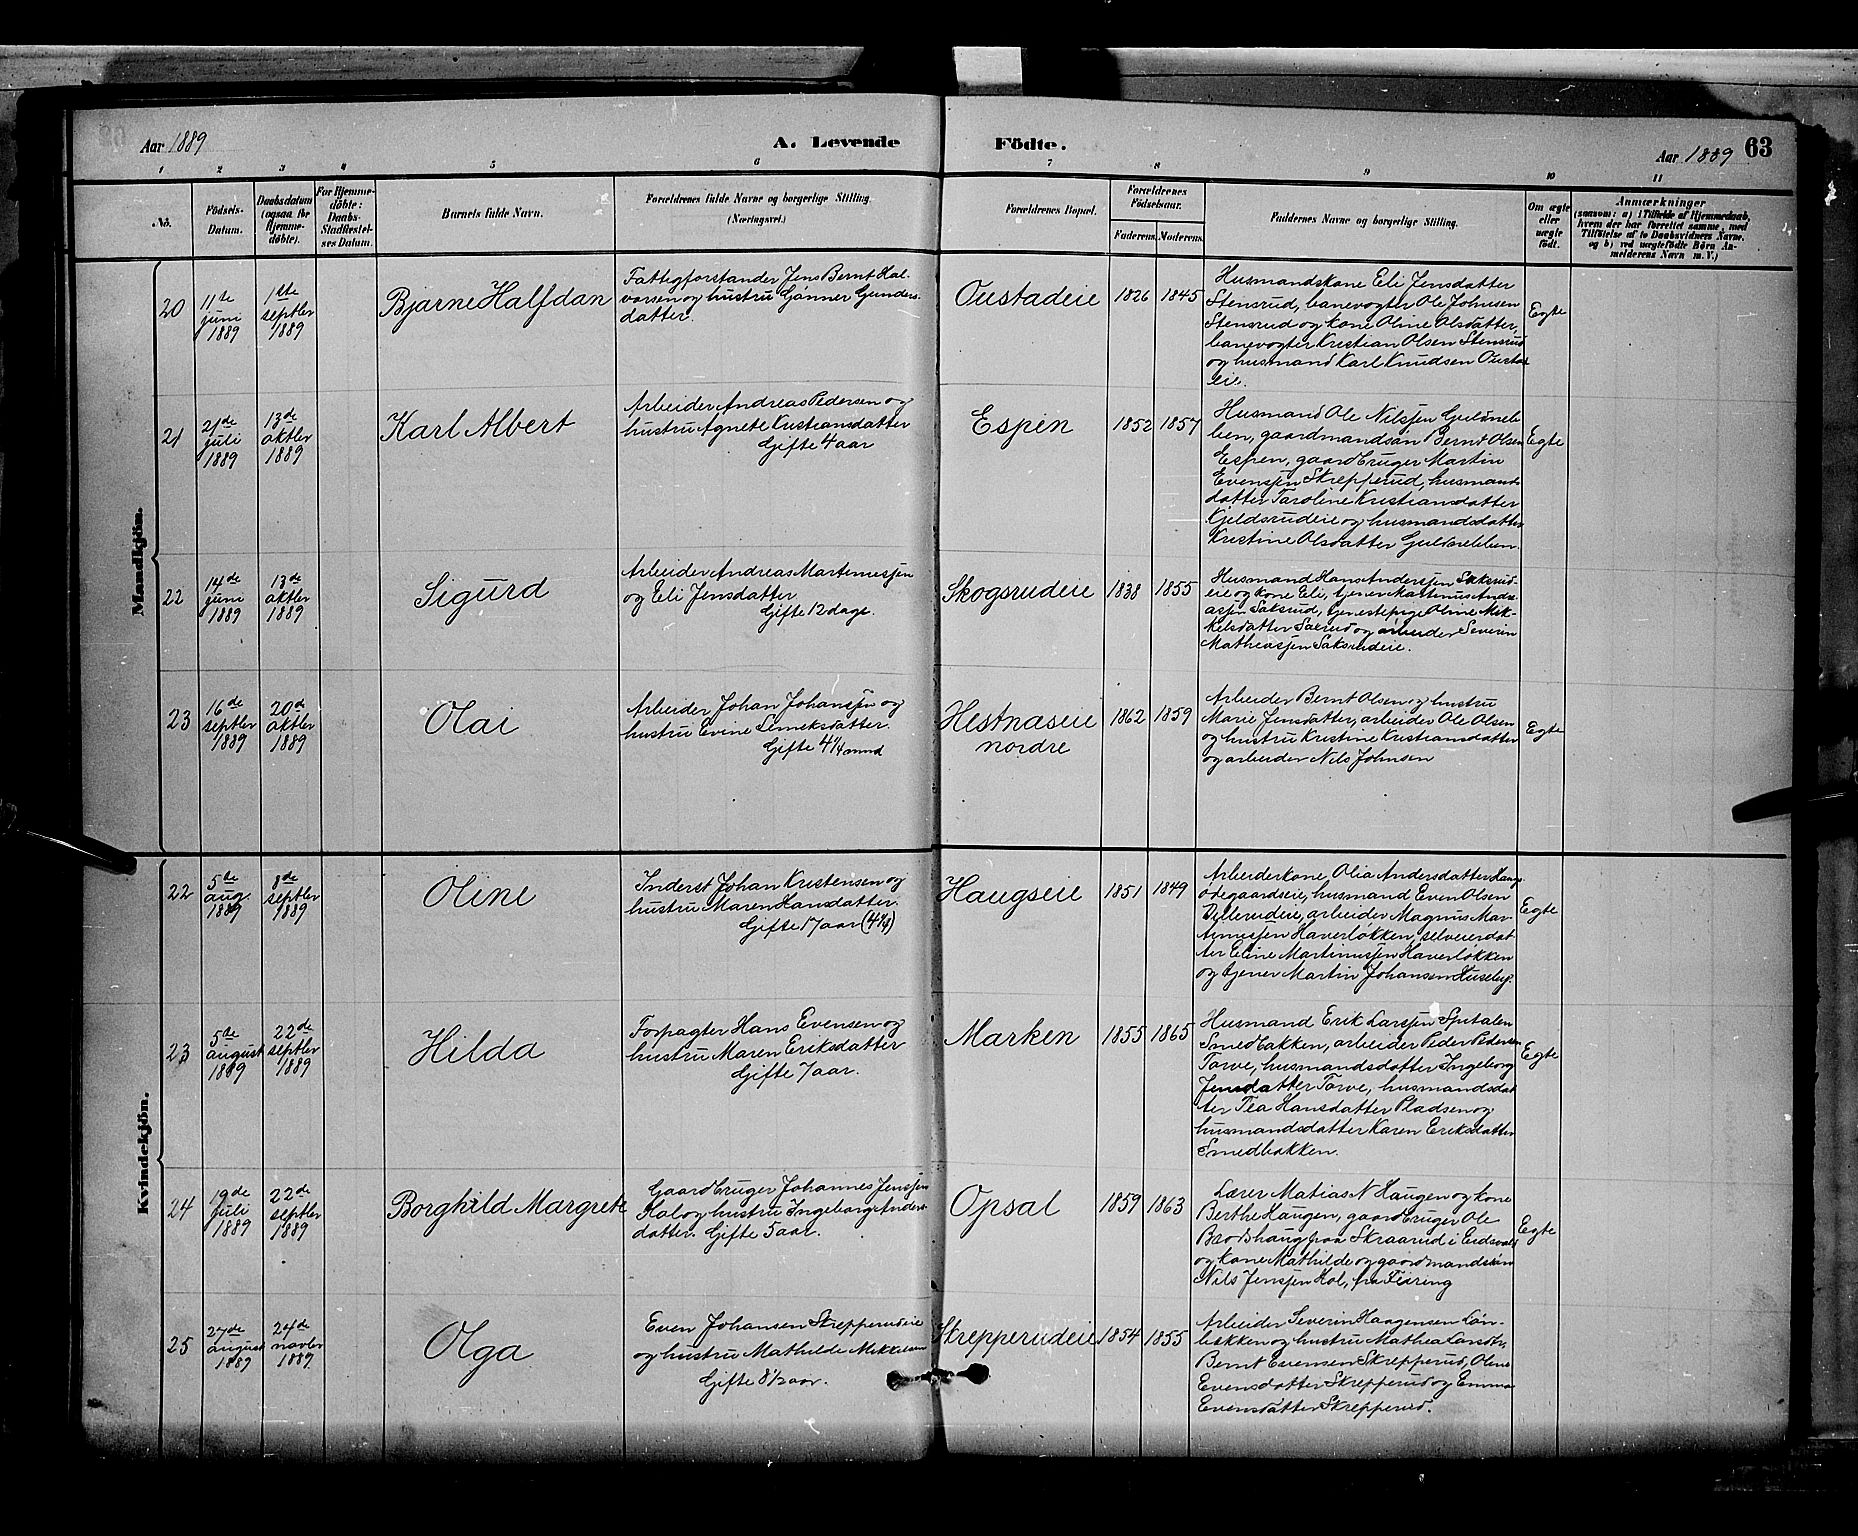 Aar 1889
A. Levende Födte.
Aar 1889 63
1 2 3 4 5 6 7 8 9 10 11
No.
Födsels-
Datum.
Daabsdatum
(ogsaa for
Hjemme-
döbte).
For Hjemme-
döbte:
Daabs-
Stadfæstel-
ses Datum.
Barnets fulde Navn.
Forældrenes fulde Navne og borgerlige Stilling.
(Næringsvei.)
Forældrenes Bopæl.
Forældrenes
Födselsaar.
Faderens. Moderens.
Faddernes Navne og borgerlige Stilling.
Om ægte
eller
uægte
födt.
Anmærkninger
(saasom: a) i Tilfælde af Hjemmedaab,
hvem der har forrettet samme, med
Tilföielse af to Daabsvidners Navne,
og b) ved uægtefödte Börn An-
melderens Navn m. V.)
Mandkjön.
20
11te
juni
1889
1ste
septbr
1889
Bjarne Halfdan
Fattigforstander Jens Bernt Hal-
vorsen og hustru Gjønner Gunders-
datter.
Oustadeie
1826 1845
Husmandskone Eli Jensdatter
Stensrud, banevogter Ole Johnsen
Stensrud og kone Oline Olsdatter,
banevogter Kristian Olsen Stensrud
og husmand Karl Knudsen Oustad
eie.
Egte
21
21de
juli
1889
13de
oktbr
1889
Karl Albert
Arbeider Andreas Pedersen og
hustru Agnete Kristiansdatter
Gifte 4 aar
Espen
1852 1857
Husmand Ole Nilssen
gaardmandsøn Bernt Olsen
Espen, gaardbruger Martin
Evenssen Skrepperud, husmands
datter Karoline Kristiansdatter
Kjeldsrudeie og husmandsdatter
Kristine Olsdatter
Egte
22
14de
juni
1889
13de
oktbr
1889
Sigurd
Arbeider Andreas Martinussen
og Eli Jensdatter
Gifte 12 dage.
Skogsrudeie
1838 1855
Husmand Hans Anderssen Saksrud-
eie og kone Eli, tjener Martinus Andre-
assen Saksrud, tjenestepige Oline Mik-
kelsdatter Saksrud og arbeider Severin
Mathiassen Saksrudeie.
23
16de
septbr
1889
20de
oktbr
1889
Olai
Arbeider Johan Johanssen og
hustru Evine Simensdatter.
Gifte 4¼ mnd
Hestnæseie
nordre
1862 1859
Arbeider Bernt Olsen og hustru
Marie Jensdatter, arbeider Ole Olsen
og hustru Kristine Kristiansdatter
og arbeider Nils Johnsen
Egte
Kvindekjön.
22
5te
aug.
1889
8de
septbr
1889
Oline
Inderst Johan Kristensen og
hustru Maren Hansdatter.
Gifte 17 aar (4⅞)
Haugseie
1851 1849
Arbeiderkone Olia Andersdatter Haugs-
ødegaardseie, husmand Even Olsen
arbeider Magnus Mar-
tinussen Haverløkken, selveierdat-
ter Eline Martinussen Haverløkken
og tjener Martin Johansen Huseby.
Egte
23
5te
august
1889
22de
septbr
1889
Hilda
Forpagter Hans Evensen og
hustru Maren Eriksdatter
Gifte 7 aar.
Marken
1855 1865
Husmand Erik Larssen Spitalen
Smedbakken, arbeider Peder Pedersen
Tørve, husmandsdatter Ingeborg
Jensdatter Tørve, husmandsdat
ter Tea Hansdatter Pladsen og
husmandsdatter Karen Eriksdatter
Smedbakken.
Egte
24
19de
juli
1889
22de
septbr
1889
Borghild Margrete
Gaardbruger Johannes Jenssen
Hol og hustru Ingeborg Anders-
datter. Gifte 5 aar.
Opsal
1859 1863
Lærer Matias N Haugen og kone
Berthe Haugen, gaardbruger Ole
Brodshaug paa Skraarud i Eidsvold
og kone Mathilde og gaardmandsøn
Nils Jenssen Hol, fra Feiring
Egte
25
27de
august
1889
24de
novbr
1889
Olga
Even Johansen Skrepperudeie
og hustru Mathilde Mikkelsen
Gifte 8½ aar.
Skrepperudeie
1854 1855
Arbeider Severin Haagensen Løn-
bakken og hustru Mathea Larsdtr,
Bernt Evensen Skrepperud, Oline
Evensdatter Skrepperud og Emma
Evensdatter Skrepperud.